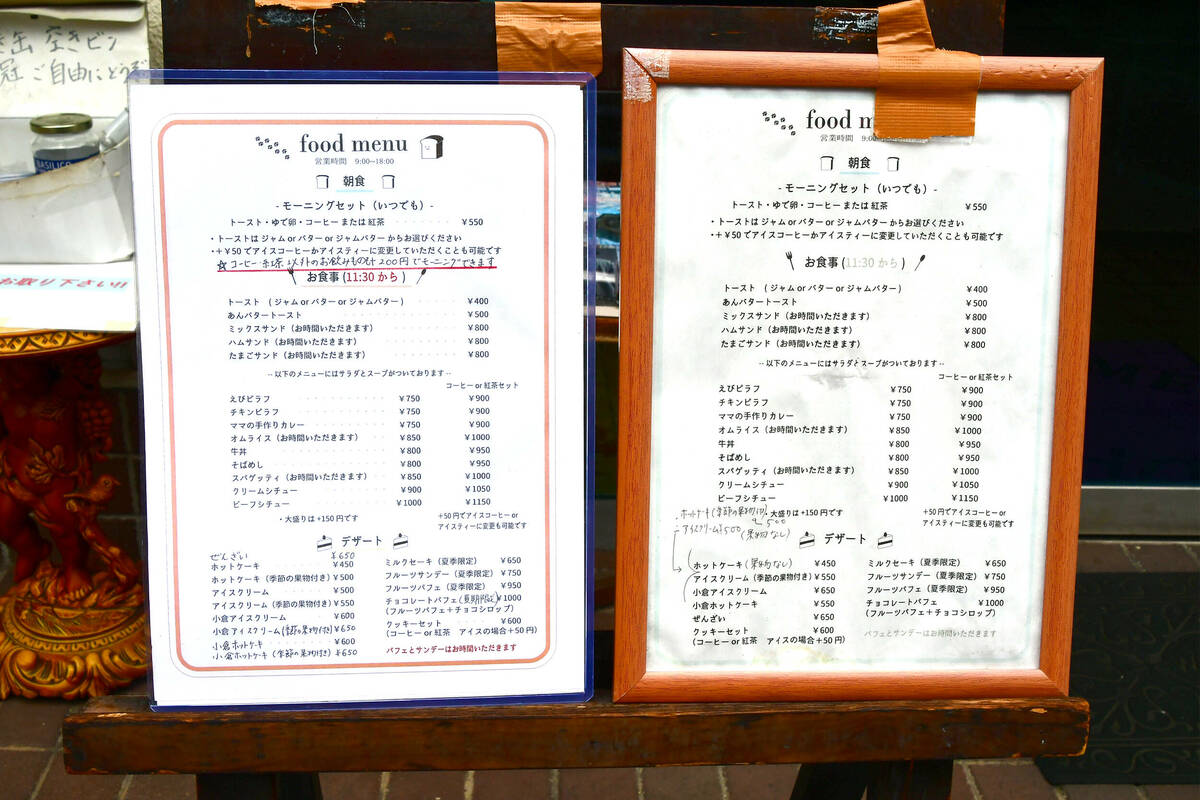 空缶 空きビン
冠 ご自由にどうぞ
BASILICO
お取り下さい!!
food menu
営業時間 9:00~18:00
朝食
- モーニングセット（いつでも）-
トースト・ゆで卵・コーヒー または 紅茶 ¥550
・トーストは ジャム or バター or ジャムバター からお選びください
・+¥50 でアイスコーヒーかアイスティーに変更していただくことも可能です
☆コーヒー 紅茶 以外のお飲みものは200円でモーニングできます
お食事 (11:30 から )
トースト （ジャム or バター or ジャムバター） ¥400
あんバタートースト ¥500
ミックスサンド（お時間いただきます） ¥800
ハムサンド（お時間いただきます） ¥800
たまごサンド（お時間いただきます） ¥800
-- 以下のメニューにはサラダとスープがついております --
コーヒー or 紅茶セット
えびピラフ ¥750 ¥900
チキンピラフ ¥750 ¥900
ママの手作りカレー ¥750 ¥900
オムライス（お時間いただきます） ¥850 ¥1000
牛丼 ¥800 ¥950
そばめし ¥800 ¥950
スパゲッティ（お時間いただきます） ¥850 ¥1000
クリームシチュー ¥900 ¥1050
ビーフシチュー ¥1000 ¥1150
・大盛りは +150 円です
+50 円でアイスコーヒー or
アイスティーに変更も可能です
デザート
ぜんざい ¥650
ホットケーキ ¥450
ホットケーキ（季節の果物付き）¥500
アイスクリーム ¥500
アイスクリーム（季節の果物付き）¥550
小倉アイスクリーム ¥600
小倉アイスクリーム（季節の果物付き）¥650
小倉ホットケーキ ¥600
小倉ホットケーキ（季節の果物付き）¥650
ミルクセーキ（夏季限定） ¥650
フルーツサンデー（夏季限定） ¥750
フルーツパフェ（夏季限定） ¥950
チョコレートパフェ（夏期限定）¥1000
（フルーツパフェ＋チョコシロップ）
クッキーセット ¥600
（コーヒー or 紅茶 アイスの場合＋50 円）
パフェとサンデーはお時間いただきます
food m
営業時間 9:00
朝食
- モーニングセット（いつでも）-
トースト・ゆで卵・コーヒー または 紅茶 ¥550
・トーストは ジャム or バター or ジャムバター からお選びください
・+¥50 でアイスコーヒーかアイスティーに変更していただくことも可能です
お食事 (11:30 から )
トースト （ジャム or バター or ジャムバター） ¥400
あんバタートースト ¥500
ミックスサンド（お時間いただきます） ¥800
ハムサンド（お時間いただきます） ¥800
たまごサンド（お時間いただきます） ¥800
-- 以下のメニューにはサラダとスープがついております --
コーヒー or 紅茶セット
えびピラフ ¥750 ¥900
チキンピラフ ¥750 ¥900
ママの手作りカレー ¥750 ¥900
オムライス（お時間いただきます） ¥850 ¥1000
牛丼 ¥800 ¥950
そばめし ¥800 ¥950
スパゲッティ（お時間いただきます） ¥850 ¥1000
クリームシチュー ¥900 ¥1050
ビーフシチュー ¥1000 ¥1150
・大盛りは +150 円です
+50 円でアイスコーヒー or
アイスティーに変更も可能です
・ホットケーキ（季節の果物付） 500
・アイスクリーム ¥500（果物なし）
デザート
ホットケーキ（果物なし） ¥450
アイスクリーム（季節の果物付き）¥550
小倉アイスクリーム ¥650
小倉ホットケーキ ¥650
ぜんざい ¥650
クッキーセット ¥600
（コーヒー or 紅茶 アイスの場合＋50 円）
ミルクセーキ（夏季限定） ¥650
フルーツサンデー（夏季限定） ¥750
フルーツパフェ（夏季限定） ¥950
チョコレートパフェ ¥1000
（フルーツパフェ＋チョコシロップ）
パフェとサンデーはお時間いただきます